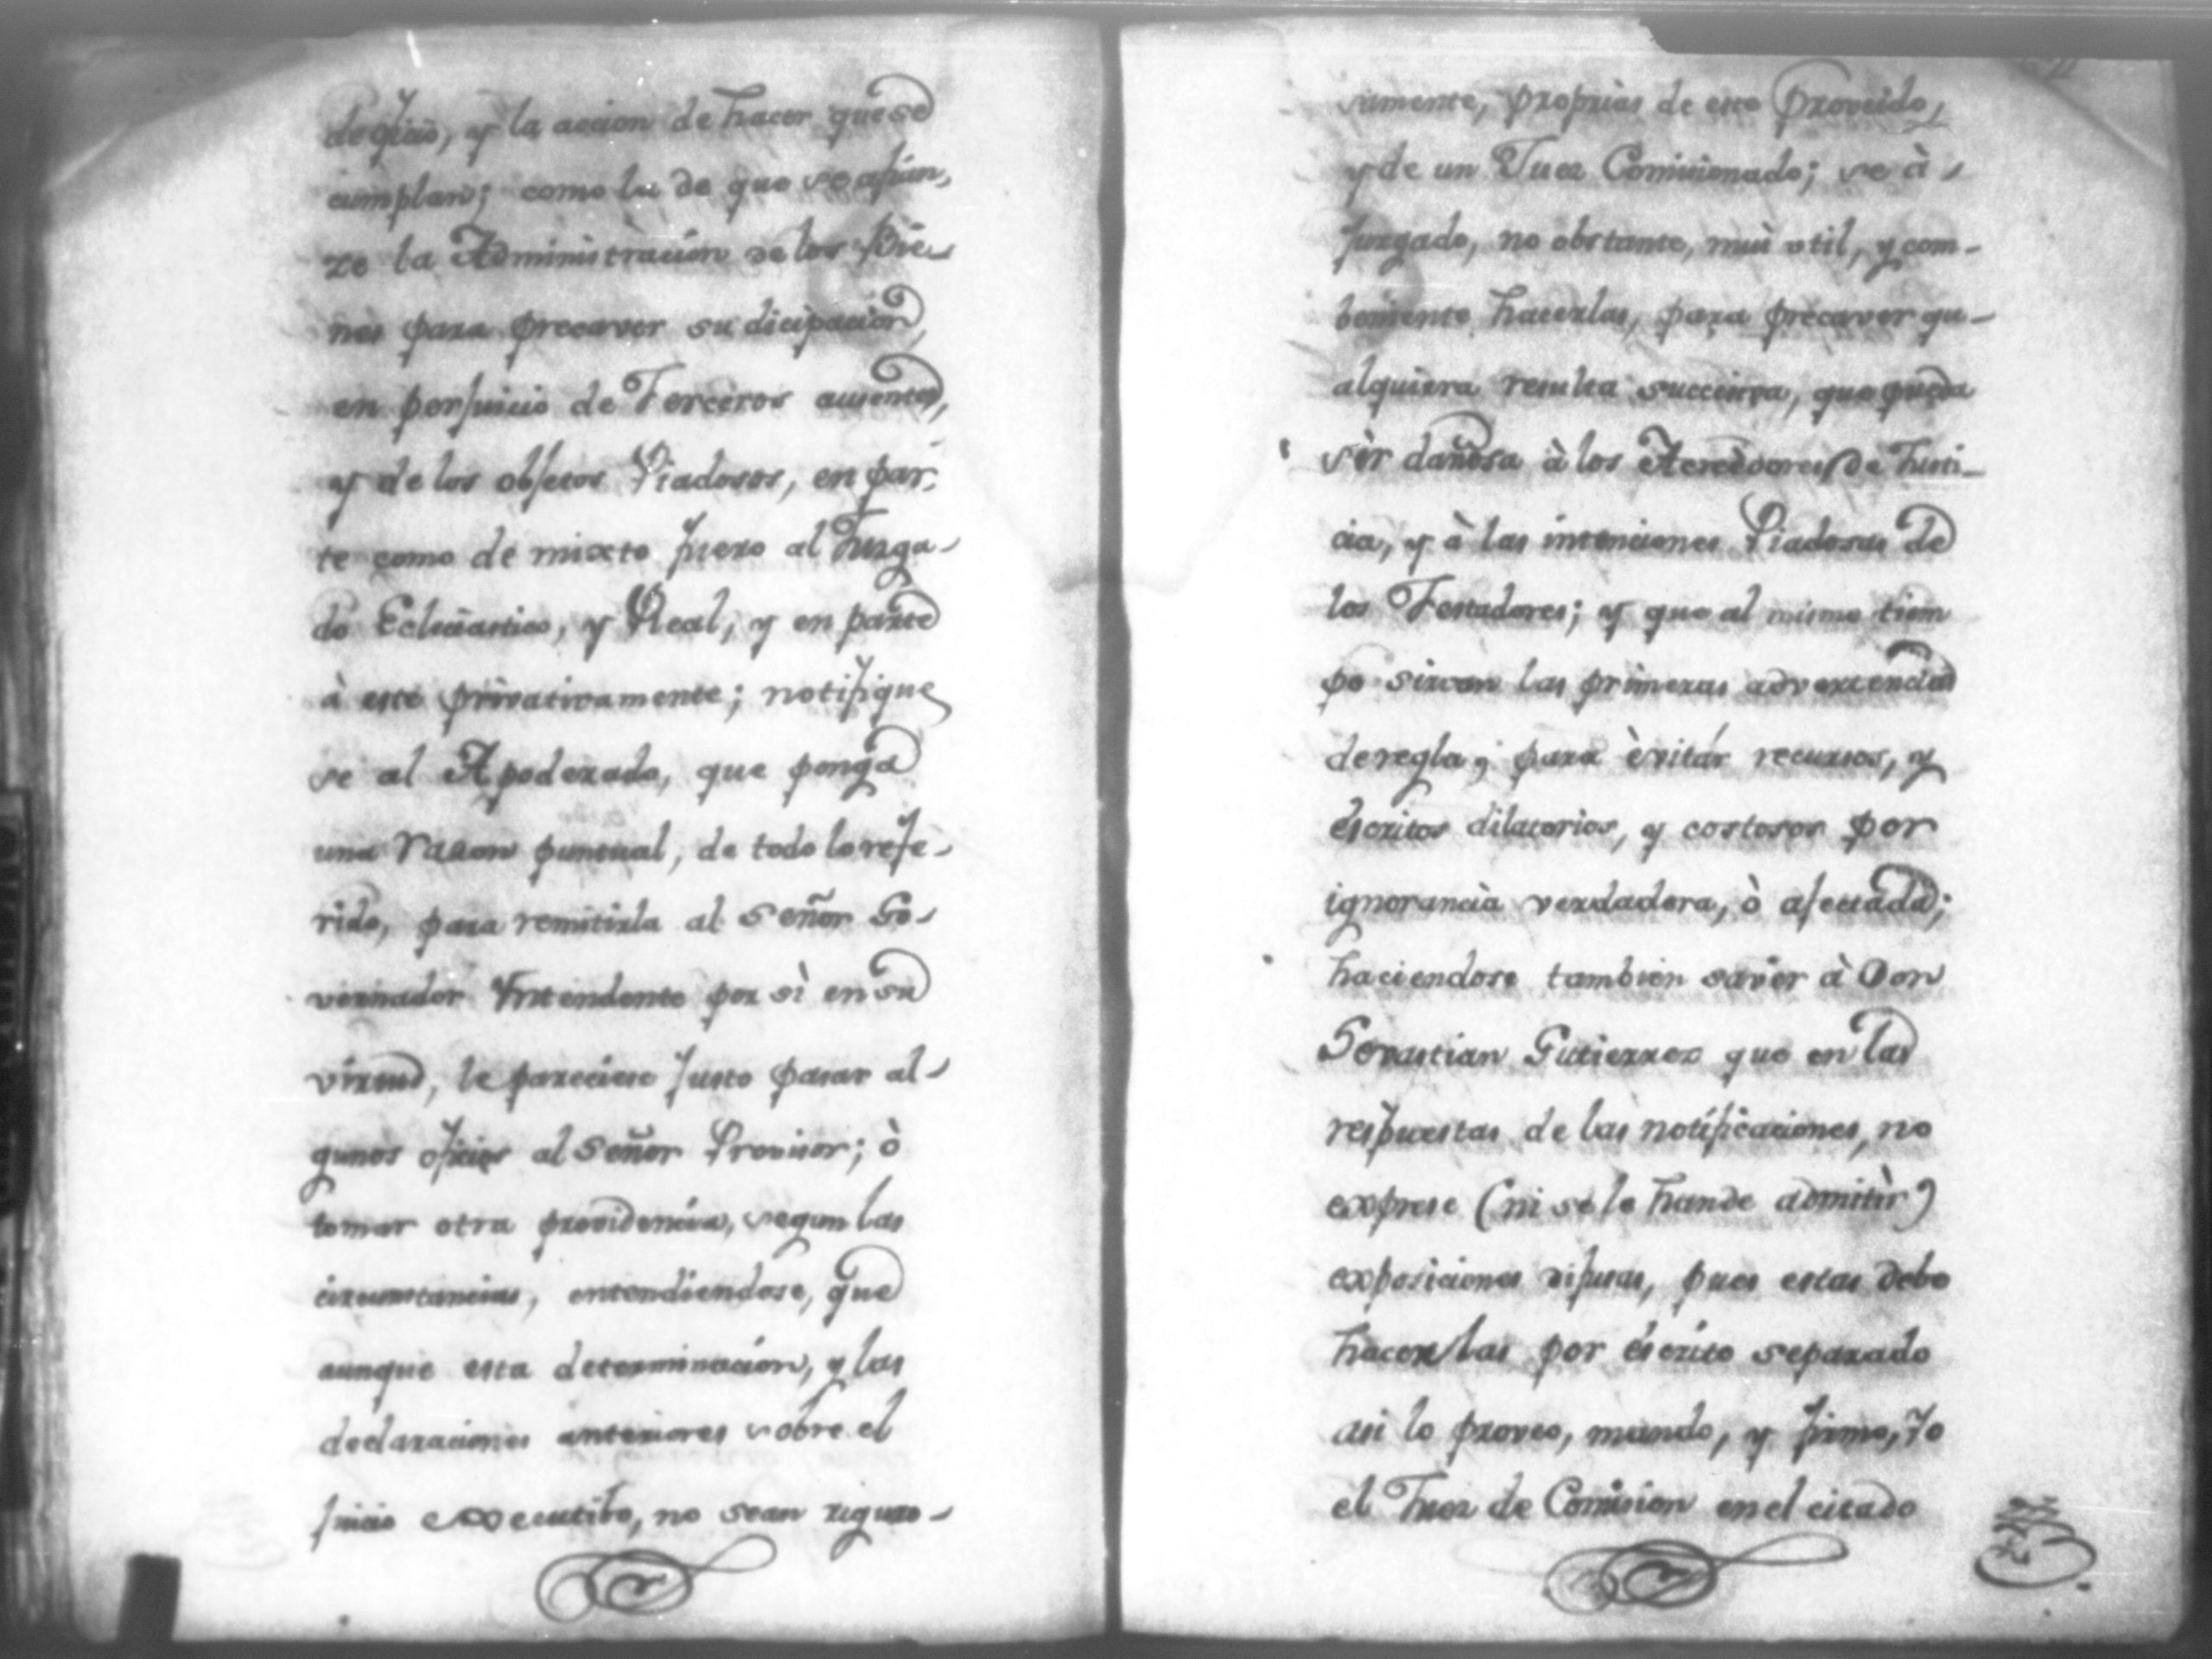 y la accion de hacer que se
cumplan; como la de que se afian,
ze la Administración de los Bie
nes para precaver su dicipación,
en perjuicio de Terceros ausentes,
y de los objetos Piadosos, en par,
te como de mixto fuero al Juzga-
do Eclesiastico, y Real, y en parte
à este privativamente; notifique
se al Apoderado, que ponga
una razon puntual, de todo lo refe-
rido, para remitirla al Señor Go-
vernador Yntendente por sì en su
virtud, le pareciese justo pasar al-
gunos oficios al Señor Provisor; ò
tomar otra providencia, segun las
circunstancias, entendiendose, que
aunque esta determinación, y las
declaraciones anteriores sobre el
juicio executibo, no sean riguro-
samente, proprias de este Proveido,
y de un Juez Comicionado; se à
juzgado, no obstante, mui util, y com-
beniente hacerlas, para precaver qu-
alquiera resulta succeciva, que pueda
sèr dañosa à los Acreedores de Justi-
cia, y à las intenciones Piadosas de
los Testadores; y que al mismo tiem
po sirvan las primeras advertencias
de regla, para èvitár recursos, y
éscritos dilatorios, y costosos por
ignorancia verdadera, ò afectada;
haciendose tambien saver à Don
Sevastian Gutierrez que en las
respuestas de las notificaciones, no
exprese (ni se le han de admitìr)
exposiciones difusas, pues estas debe
hacerlas por éscrito separado
asi lo proveo, mando, y firmo, Yo
el Juez de Comision en el citado